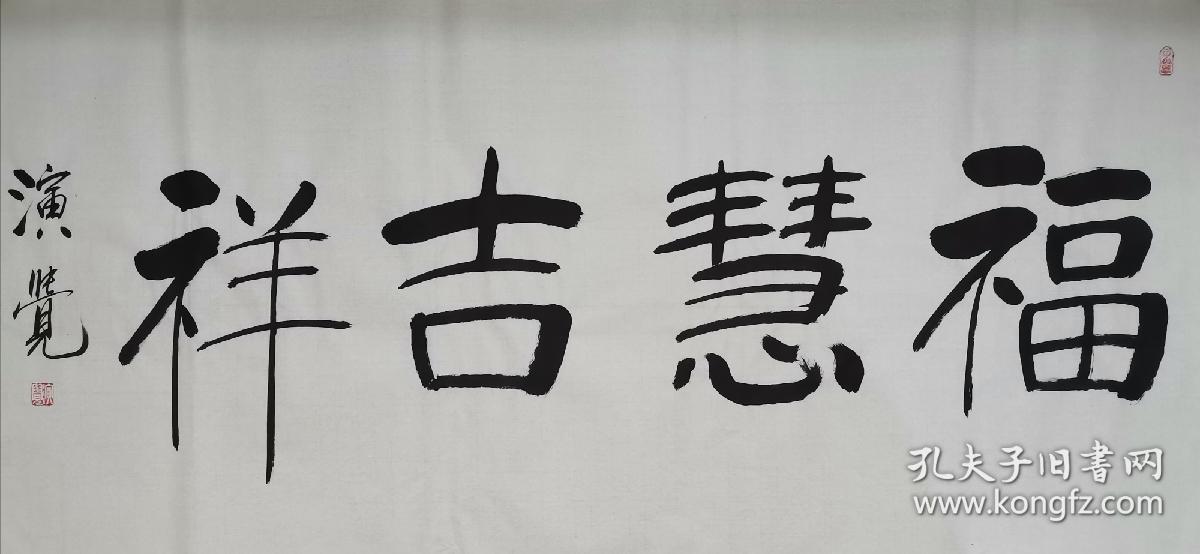 福慧吉祥
演覺
孔夫子旧書网
www.kongfz.com